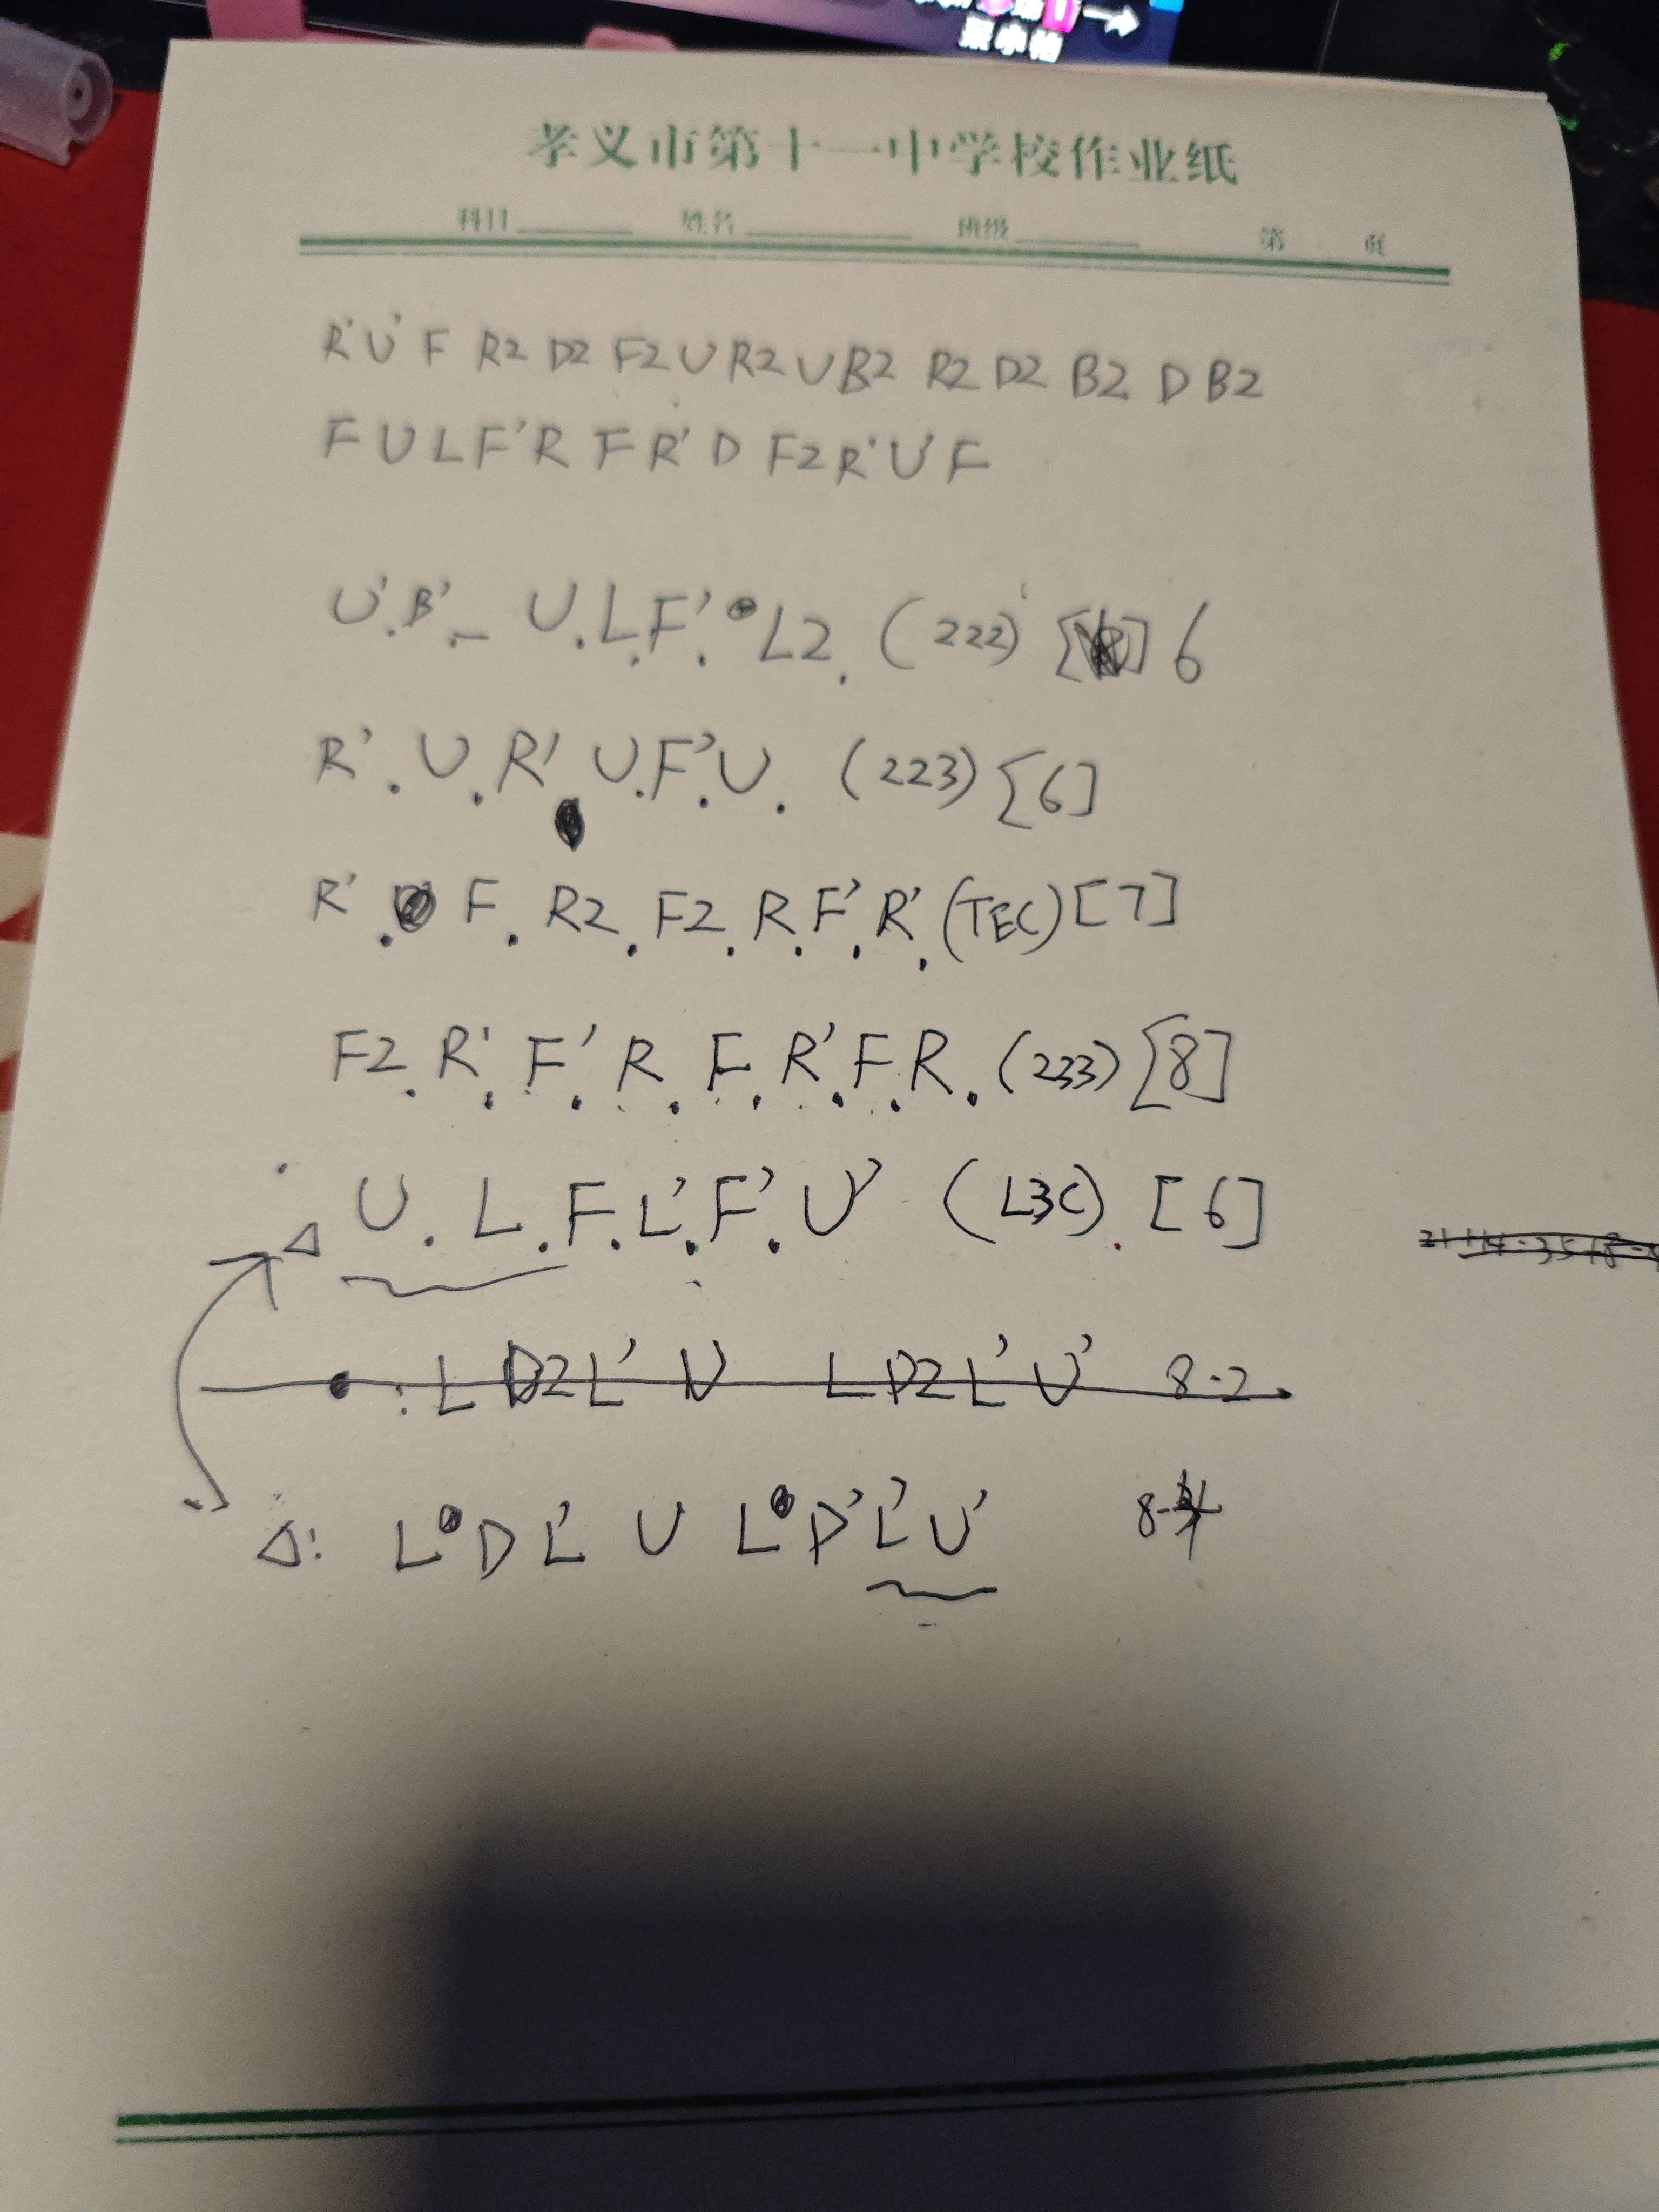 孝义市第十一中学校作业纸
科目 姓名 班级 第 页
R' U' F R2 D2 F2 U R2 U B2 R2 D2 B2 D B2
F U L F' R F R' D F2 R' U' F
U'. B'. U. L. F'. L2. (222) [ ] 6
R'. U. R' U. F'. U. (223) [6]
R'. F. R2. F2. R. F'. R'. (TEC) [7]
F2. R'. F'. R. F. R'. F. R. (233) [8]
△ U. L. F. L'. F'. U' (L3C). [6]
: L D2 L' U L D2 L' U' 8-2
△: L D L' U L D' L' U' 8-